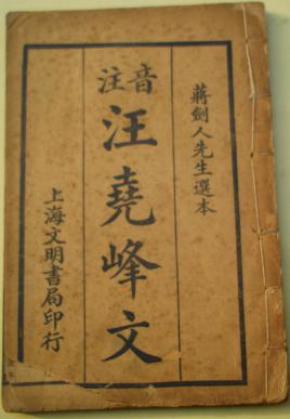 蔣劍人先生選本
音注
汪堯峰文
上海文明書局印行